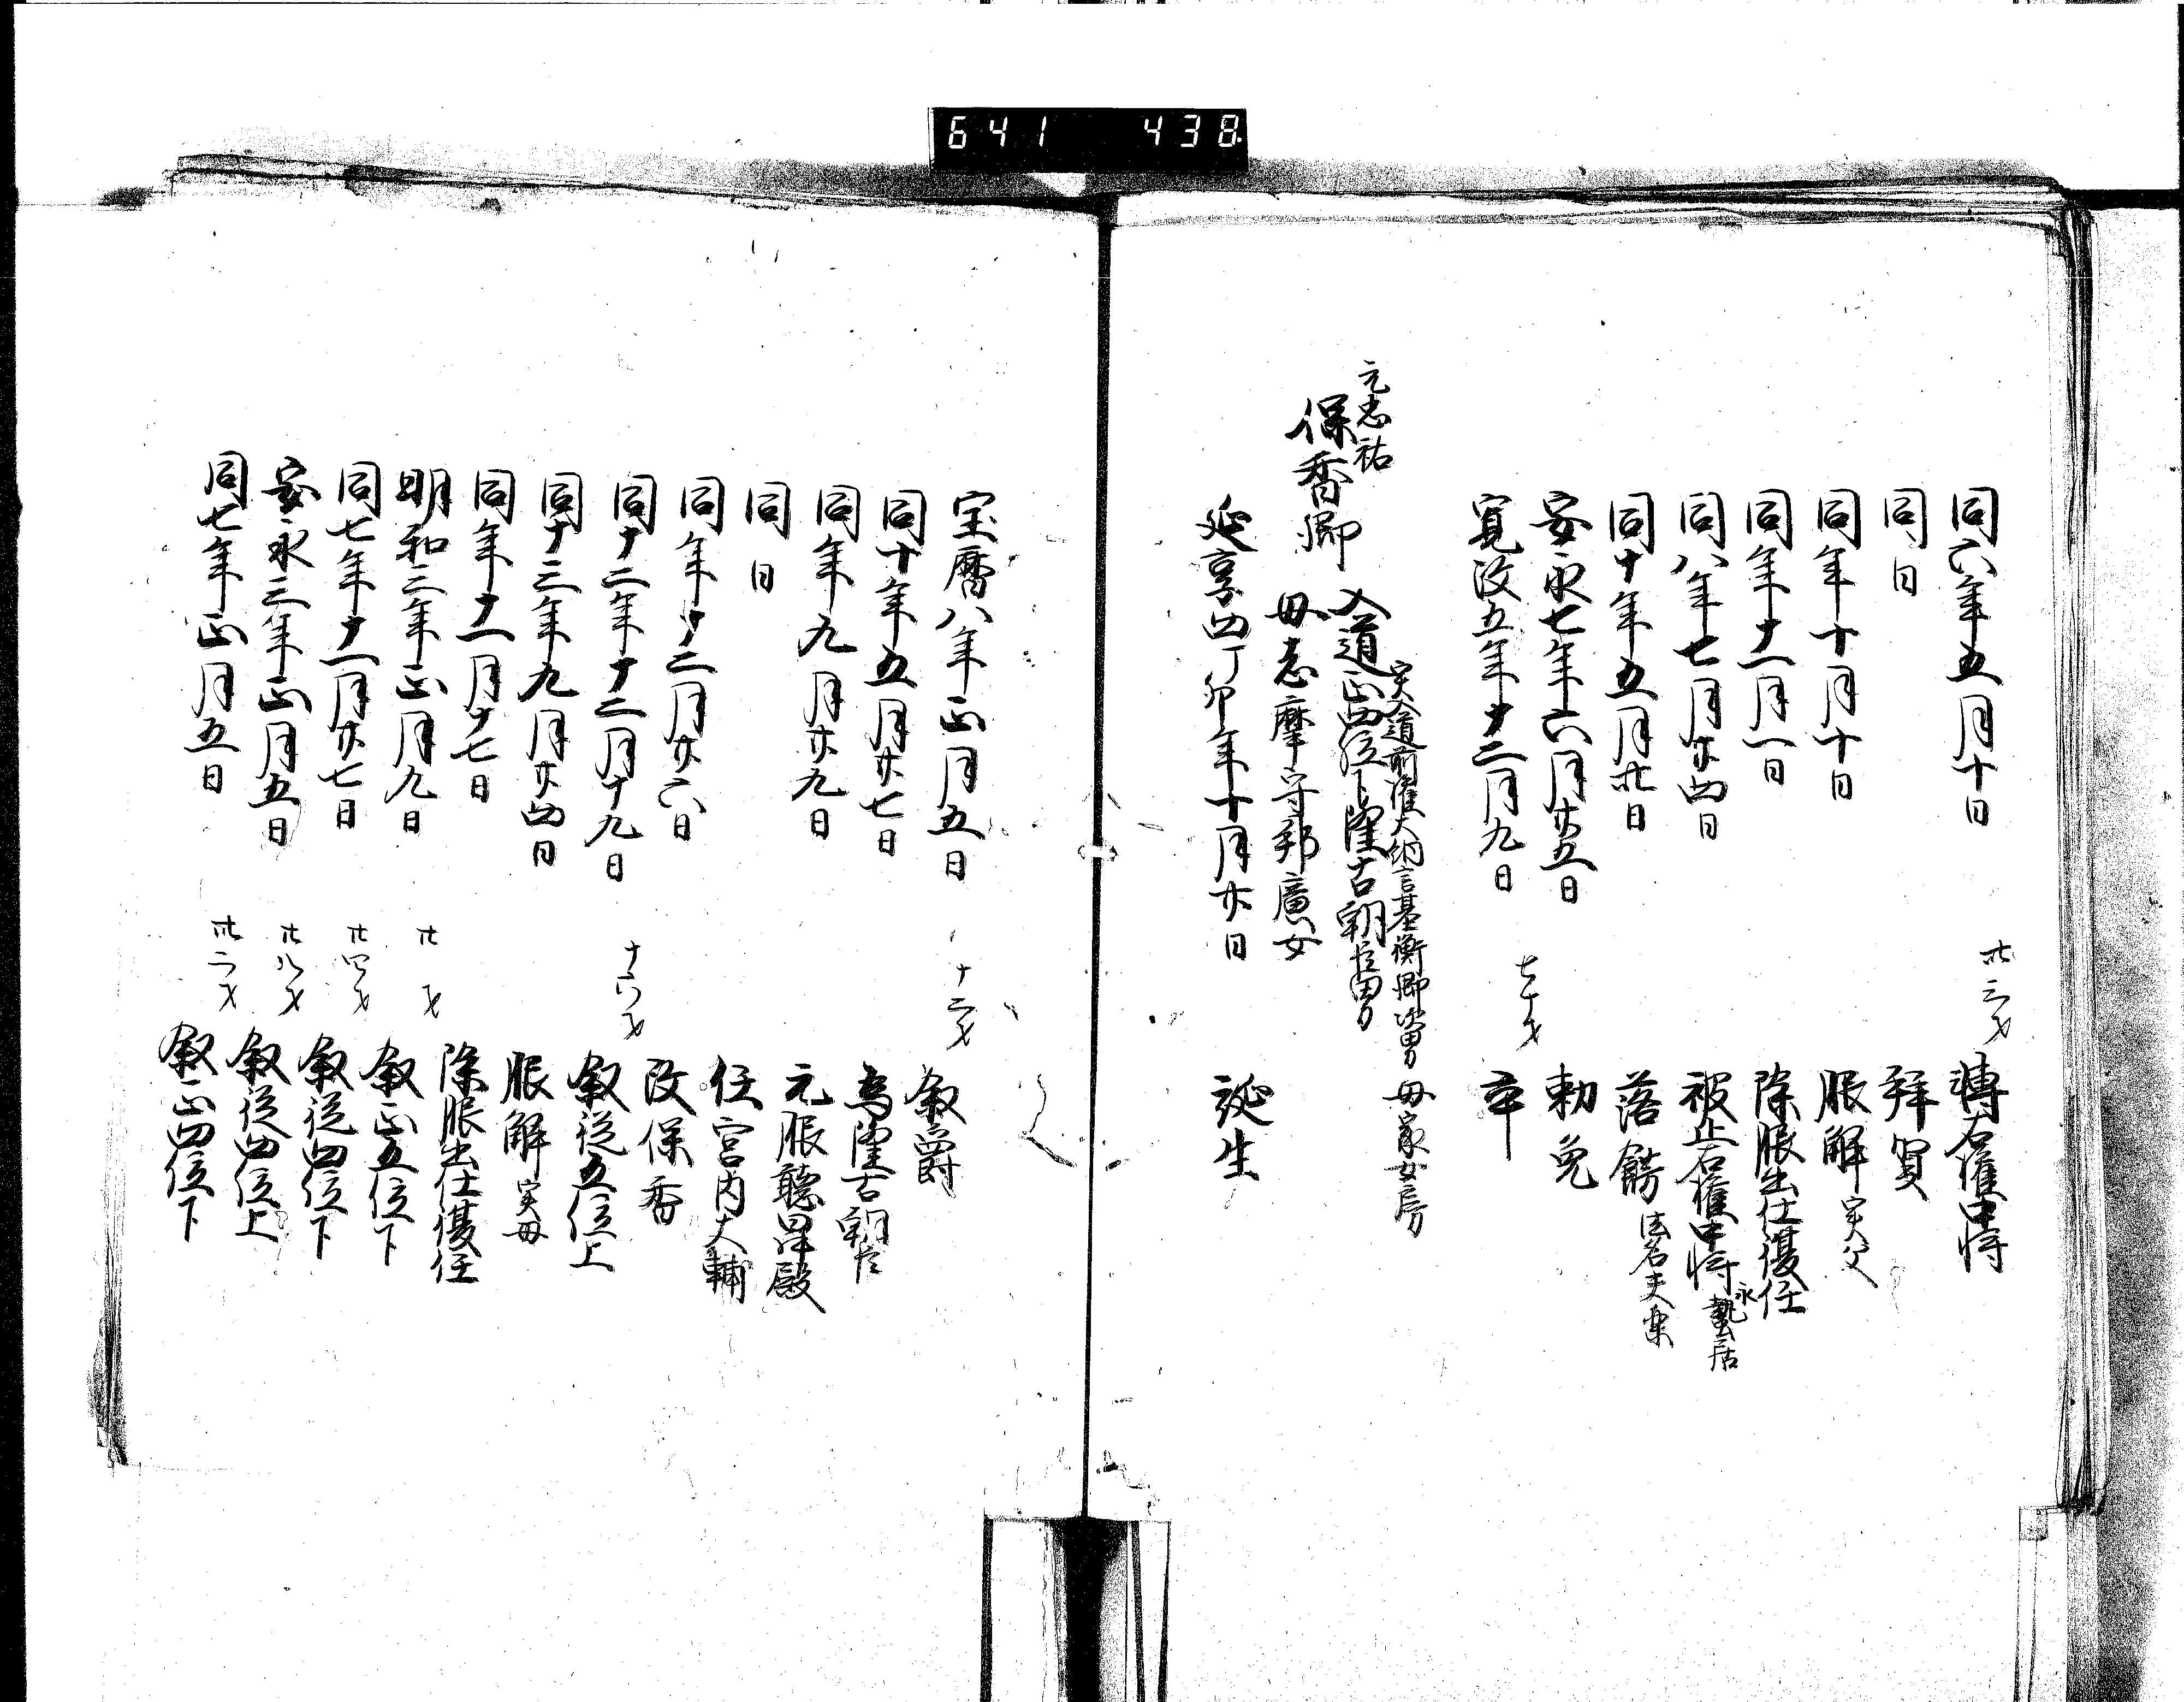 641 438
同六年五月十日 卅三才 轉右權中将
同日 拜賀
同年十月十日 服解 実父
同年十一月一日 除服出仕復任
同八年七月廿四日 被止右権中将 永蟄居
同十年五月卅日 落餝 法名
安永七年六月廿五日 勅免
寛政五年十二月九日 七十才 卒
元忠祐
保香卿
実入道前權大納言基衡卿男 母家女房
入道正四位下隆古朝臣男
母志摩守邦廣女
延享四丁卯年十月廿日 誕生
宝暦八年正月五日 十二才 叙爵
同十年五月廿七日 為隆古朝臣
同年九月廿九日 元服聽昇殿
同日 任宮内大輔
同年十二月廿六日 改保香
同十二年十二月十九日 十六才 叙従五位上
同十三年九月廿四日 服解 実母
同年十一月十七日 除服出仕復任
明和三年正月九日 廿才 叙正五位下
同七年十一月廿七日 廿四才 叙従四位下
安永三年正月五日 廿八才 叙従四位上
同七年正月五日 卅二才 叙正四位下